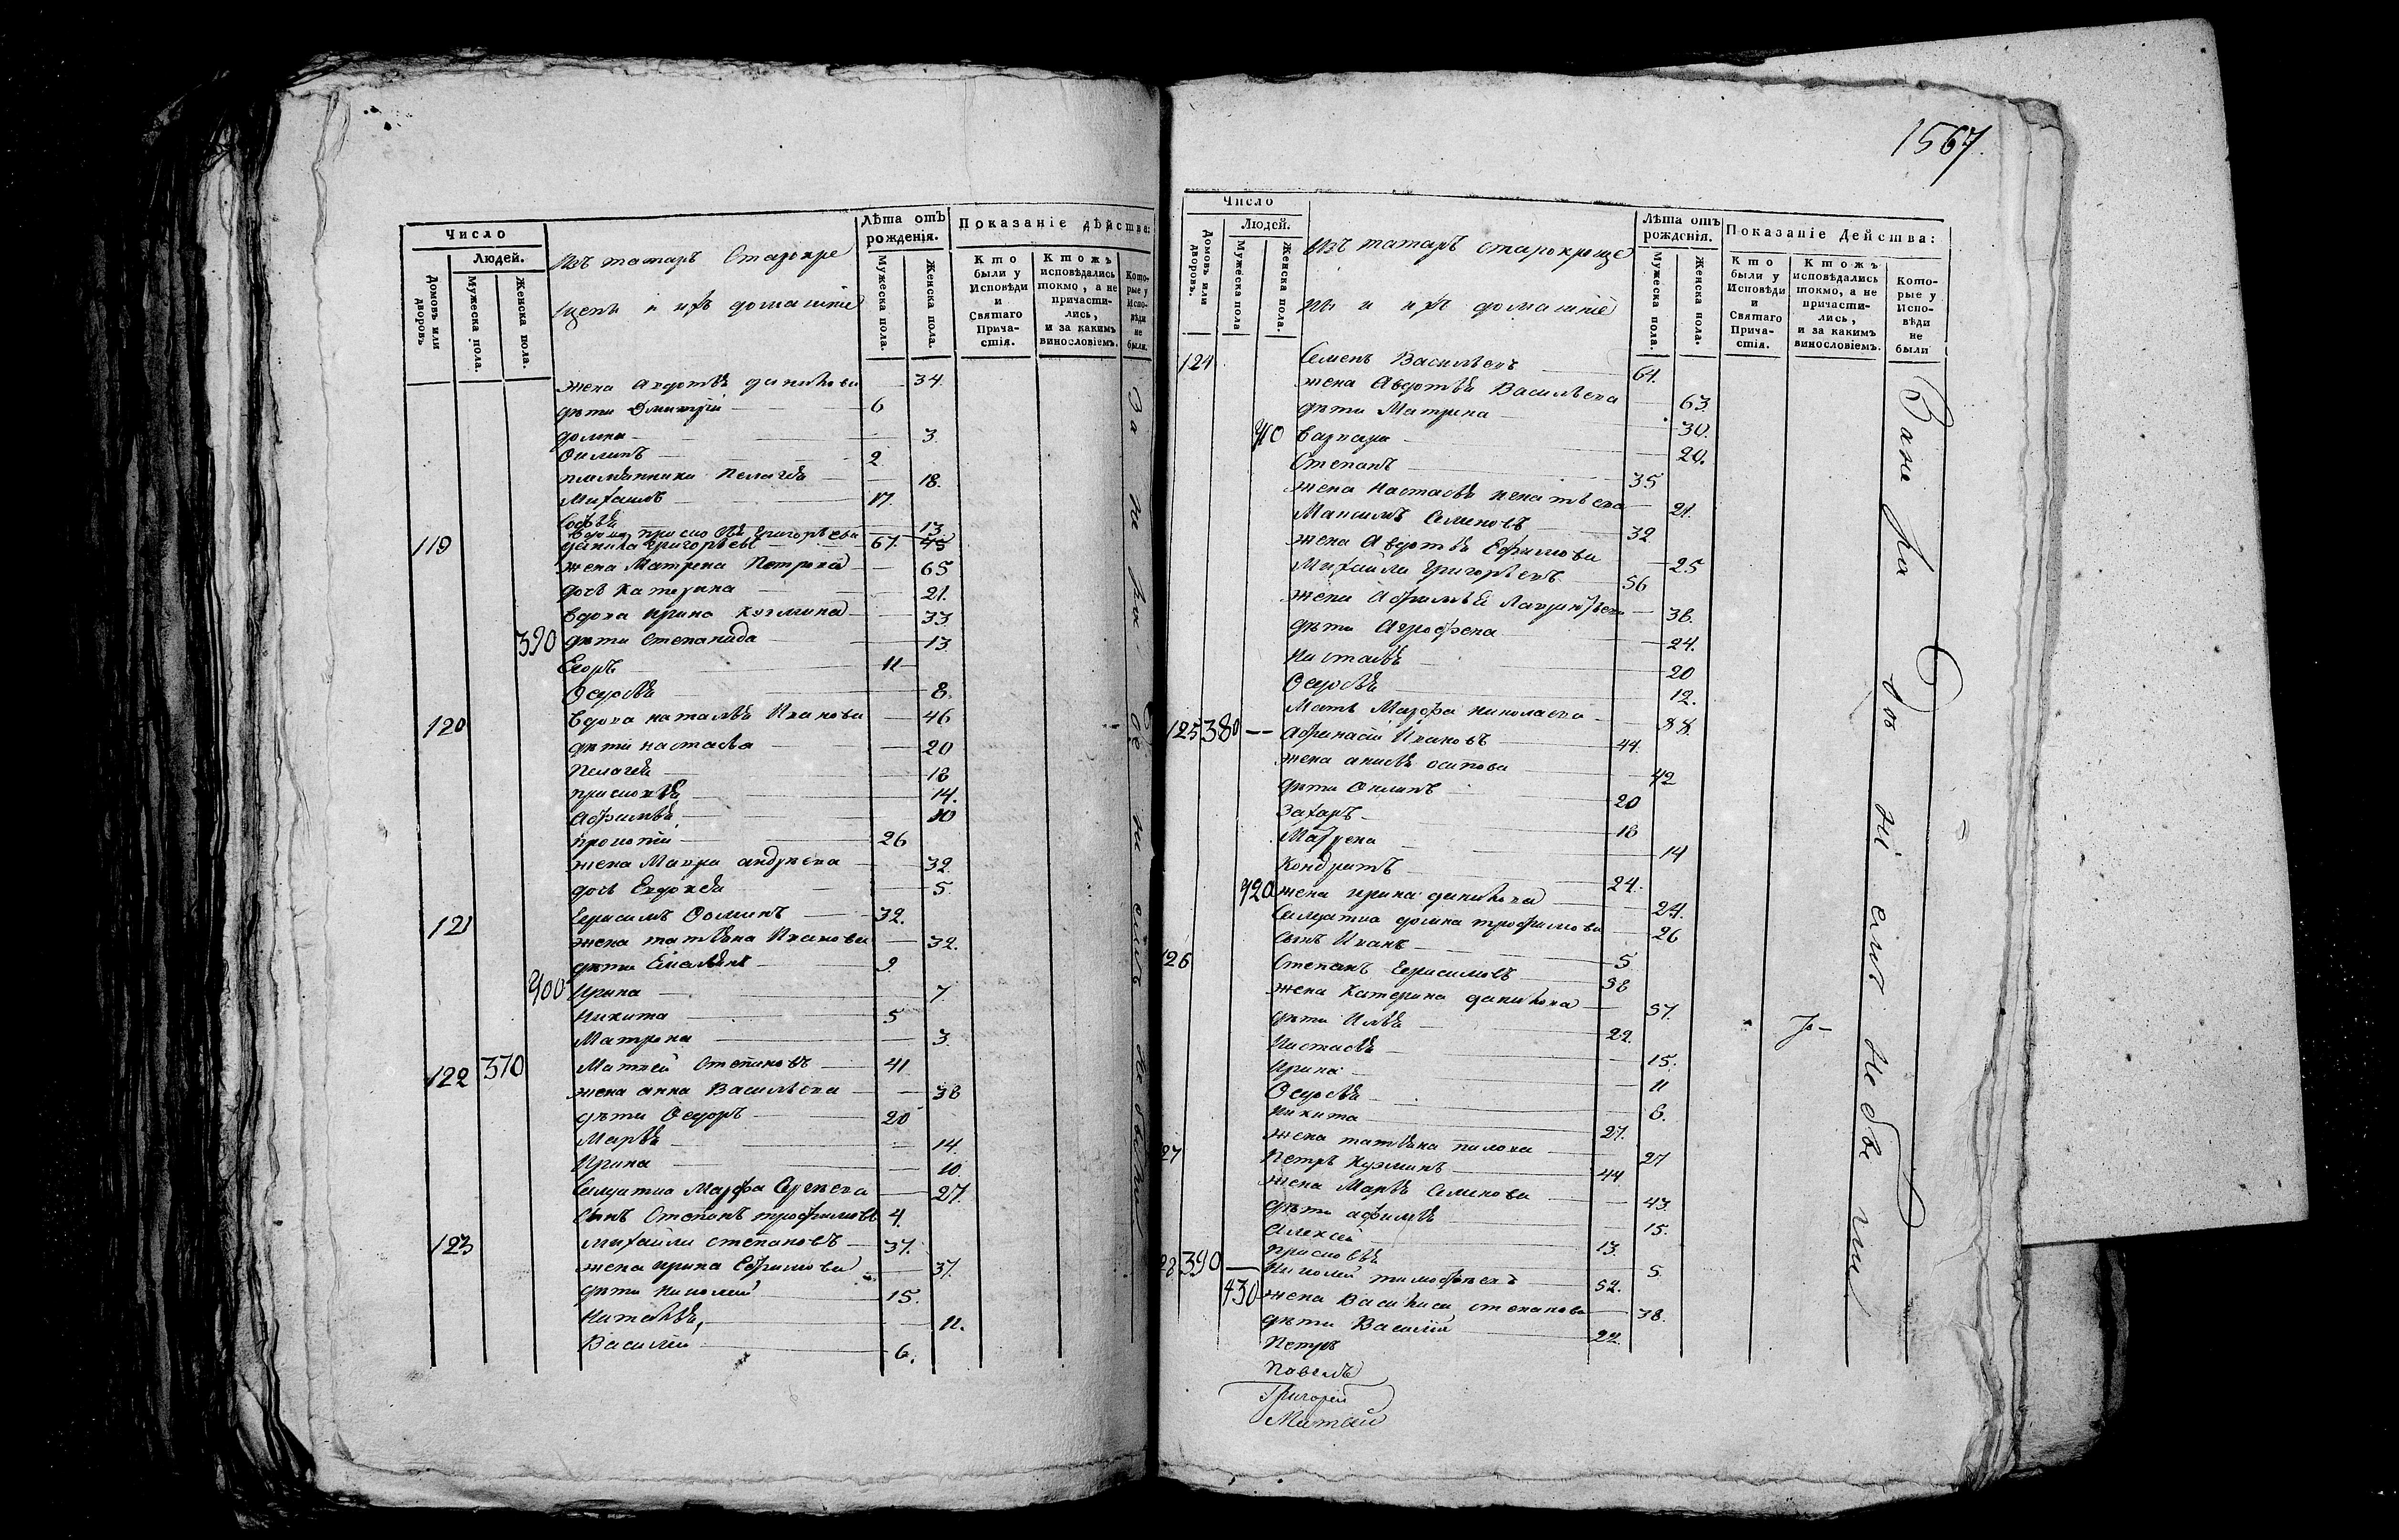 Число
Людей.
Домовъ или дворовъ
Мужеска пола.
Женска пола.
Изъ татаръ Старокре
щенъ и ихъ домашніе
Лѣта отъ рожденія.
Мужеска пола.
Женска пола.
Показаніе дѣйства:
Кто были у Исповѣди и Святаго Причастія.
Ктожъ исповѣдались токмо, а не причастились, и за какимъ винословіемъ.
Которые у Исповѣди не были.
жена Авдотья данилова — 34.
дѣти Дмитрій — 6
домна — 3.
Филипъ — 2
племянника Пелагѣя — 18.
Михаилъ — 17.
Софья — 13
вдова прасковья Григорьева — 45
119 данила Григорьевъ — 67.
жена Матрена Петрова — 65
дочь Катерина — 21.
вдова Ирина Кузмина — 33
390 дѣти Степанида — 13
Егоръ — 11
Федосья — 8.
120 вдова наталья Иванова — 46
дѣти настасья — 20
Пелагѣя — 18
прасковья — 14.
Афимья — 10
прокопій — 26
жена Мавра андреева — 32.
дочь Евдокѣя — 5.
121 Герасимъ Фоминъ — 32.
жена татьяна Иванова — 32.
дѣти Емельянъ — 9.
400 Ирина — 7.
Никита — 5
Матрона — 3.
122 370 Матвей Степановъ — 41
жена анна Васильева — 38
дѣти Федоръ — 20
Марья — 14.
Ирина — 10.
Салдатка Марфа Сергѣева — 27.
сынъ Степанъ трофимовъ 4.
123 михаила степановъ — 37.
жена ирина Ефимова — 37.
дѣти николай — 15.
Наталья, — 11.
Василій — 6.
За не ра де ні емъ не были
1567.
Число
Людей.
Домовъ или дворовъ.
Мужеска пола
Женска пола.
Изъ татаръ старокреще
нъ и ихъ домашніе
Лѣта отъ рожденія.
Мужеска пола.
Женска пола.
Показаніе Дейсmва:
Кто были у Исповѣди и Святаго Причастія.
Ктожъ исповѣдались токмо, а не причастились, и за какимъ винословіемъ.
Которые у Исповѣди не были
124 Семенъ Васильевъ — 64.
жена Авдотья Васильева — 63.
дѣти Матрена — 30.
410 варвара — 20.
Степанъ — 35
жена настасья игнатьева — 21.
Максимъ Семеновъ — 32.
жена Авдотья Ефимова — 25
Михаила Григорьевъ — 56
жена Афимья Лаврентьева — 38.
дѣти Аграфена — 24.
Настасья — 20
Федосья — 12.
Мать Марфа николаева — 88.
125 380 — Афанасій Ивановъ — 44.
жена анисья осипова — 42
дѣти Филипъ — 20
Захаръ — 18
Матрена — 14
Кондратъ — 24.
420 жена ирина данилова — 24.
Салдатка домна трофимова — 26
сынъ Иванъ — 5
126 Степанъ Герасимовъ — 58
жена Катерина данилова — 57.
дѣти Илья — 22.
Настасья — 15.
Ирина — 11
Федосья — 6.
Никита — 27.
жена татьяна пилова — 27
27 Петръ Кузминъ — 44
жена Марья Семенова — 43.
дѣти афимья — 15.
алексѣй — 13.
прасковья — 5.
28 390 — Николай тимофѣевъ — 52.
430 жена Василиса степанова — 38.
дѣти Василій — 22.
Петръ
Павелъ
Григорей
Матвѣй
За не ра де ні емъ не бы ли